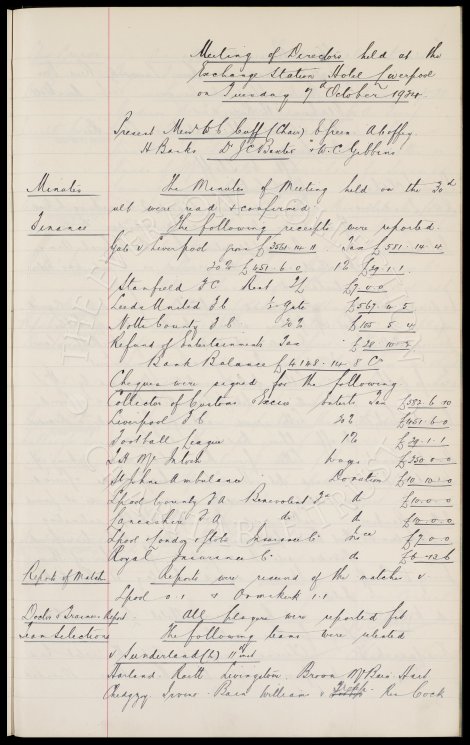 Meeting of Directors held at the
Exchange Station Hotel Liverpool
on Tuesday 7th October 1924.
Present Messrs W.C. Cuff (Chair) E Green. A Coffey.
H Banks Dr J C Baxter & W.C. Gibbins
Minutes The Minutes of Meeting held on the 30th
ult were read & confirmed
Finance The following receipts were reported.
Gate v Liverpool gross £3561.14.11 Tax £581.14.4
20% £451.6.0 1% £29.1.1.
Stanfield F C Rent £7.0.0
Leeds United F C Gate £567.4.5
Notts County F C. 20% £105.5.4
Refund of Entertainments Tax £28.10.
Bank Balance £4148.14.8 Cr
Cheques were signed for the following
Collector of Customs Excise Tax £582.6.10
Liverpool F C 20% £451.6.0
Football League 1% £29.1.1
Wages £250.0.0
St Johns Ambulance Donation £10.10.0
Lpool County F.A. Benevolent Fd do £10.0.0
Lancashire F A do do £10.0.0
Lpool London & Globe Insurance Co Insce £7.0.0
Royal Insurance Co do £6.12.6
Reports of Match Reports were received of the matches v
Lpool 0.1 & Ormskirk 1.1
Doctor & Trainers Report. All players were reported fit
Team Selections The following teams were selected
v Sunderland (L) 11th inst
Harland. Raitt Livingstone. Brown McBain. Hart
Chedgzoy Irvine. Bain Williams & Res Cock